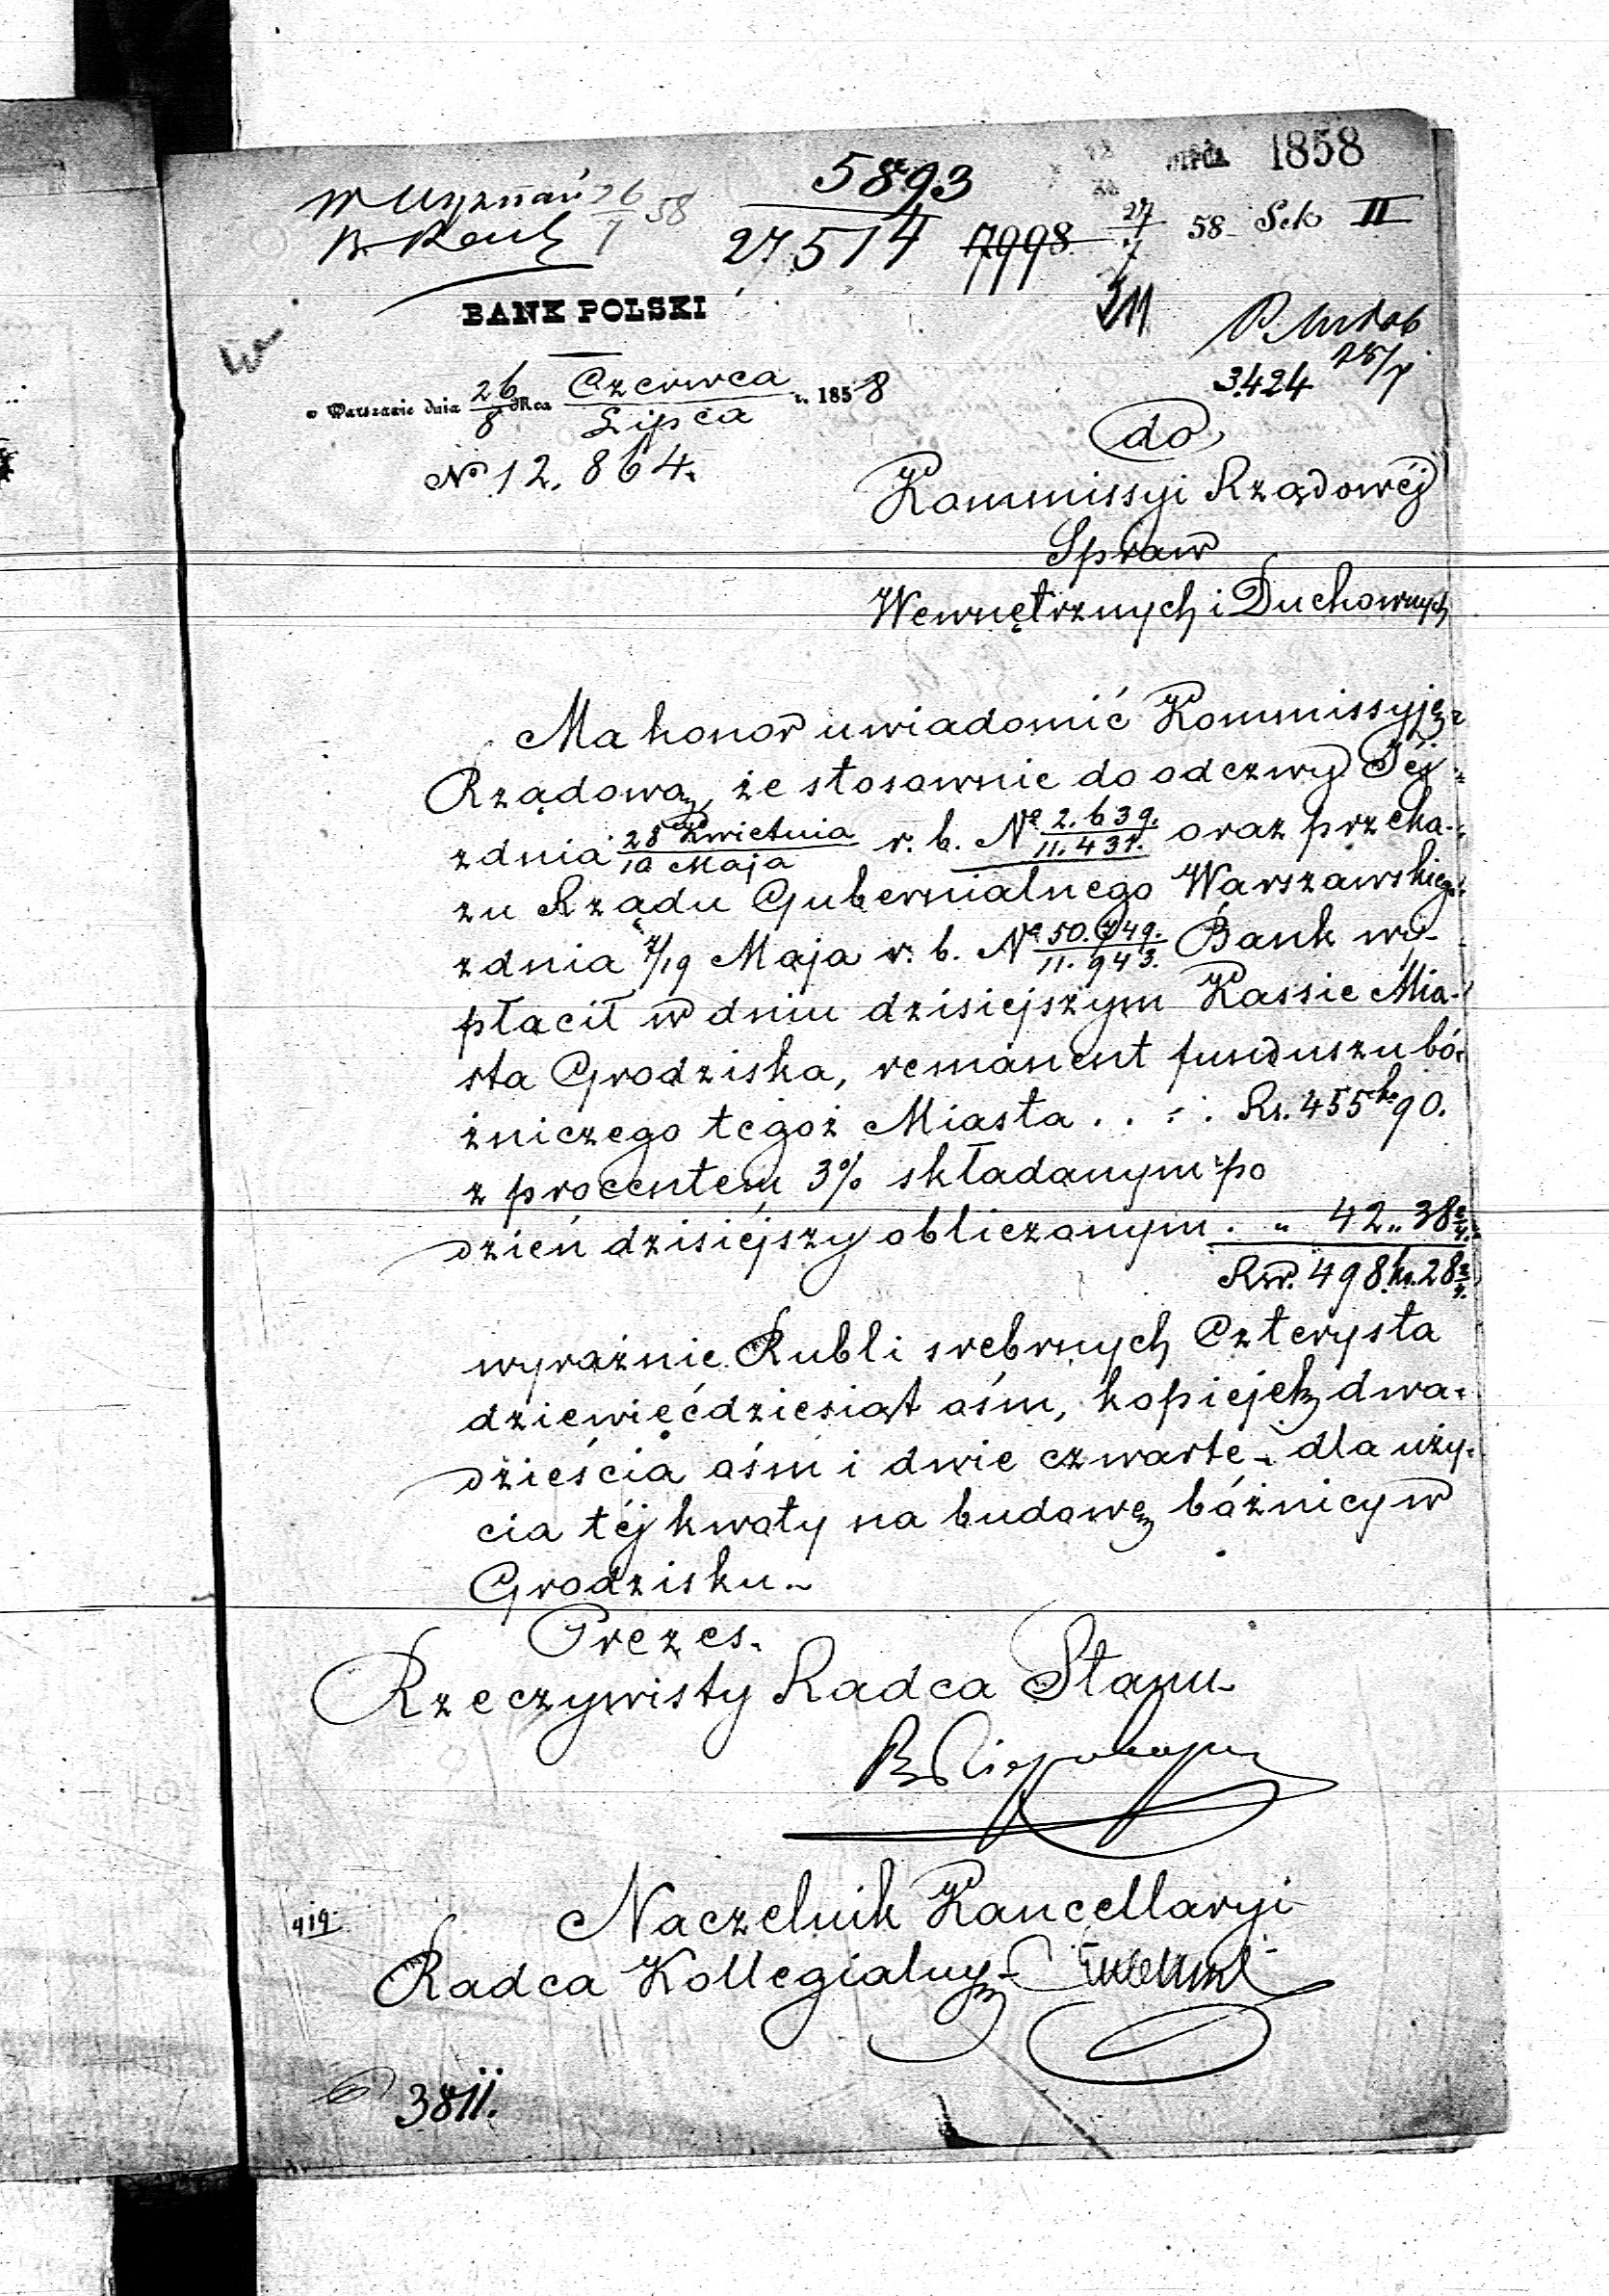 1858
5893
27514 7998 27/7 58 Sek II
26/7 58
BANK POLSKI
3424 28/7
w Warszawie dnia 26/8 Mca Czerwca/Lipca r. 1858
№ 12.864.
do
Kommissyi Rządowéj
Spraw
Wewnętrznych i Duchownych
Ma honor uwiadomić Kommissyję
Rządową, że stosownie do odezwy Jéj
z dnia 28 Kwietnia/10 Maja r. b. № 2.639./11.431. oraz przeka-
zu Rządu Gubernialnego Warszawskiego
z dnia 7/19 Maja r. b. № 50.749./11.943. Bank wy-
płacił w dniu dzisiejszym Kassie Mia-
sta Grodziska, remanent funduszu bó-
żniczego tegoż Miasta . . . . Rs. 455 k. 90.
z procentem 3% składanym po
dzień dzisiejszy obliczonym . „ 42 „ 38 2/4
Rsr. 498 k. 28 2/4.
wyraźnie Rubli srebrnych Czterysta
dziewięćdziesiąt ośm, kopiejek dwa-
dzieścia ośm i dwie czwarte - dla uży-
cia téj kwoty na budowę bóżnicy w
Grodzisku.
Prezes.
Rzeczywisty Radca Stanu
Naczelnik Kancellaryi
419
Radca Kollegialny
3811.